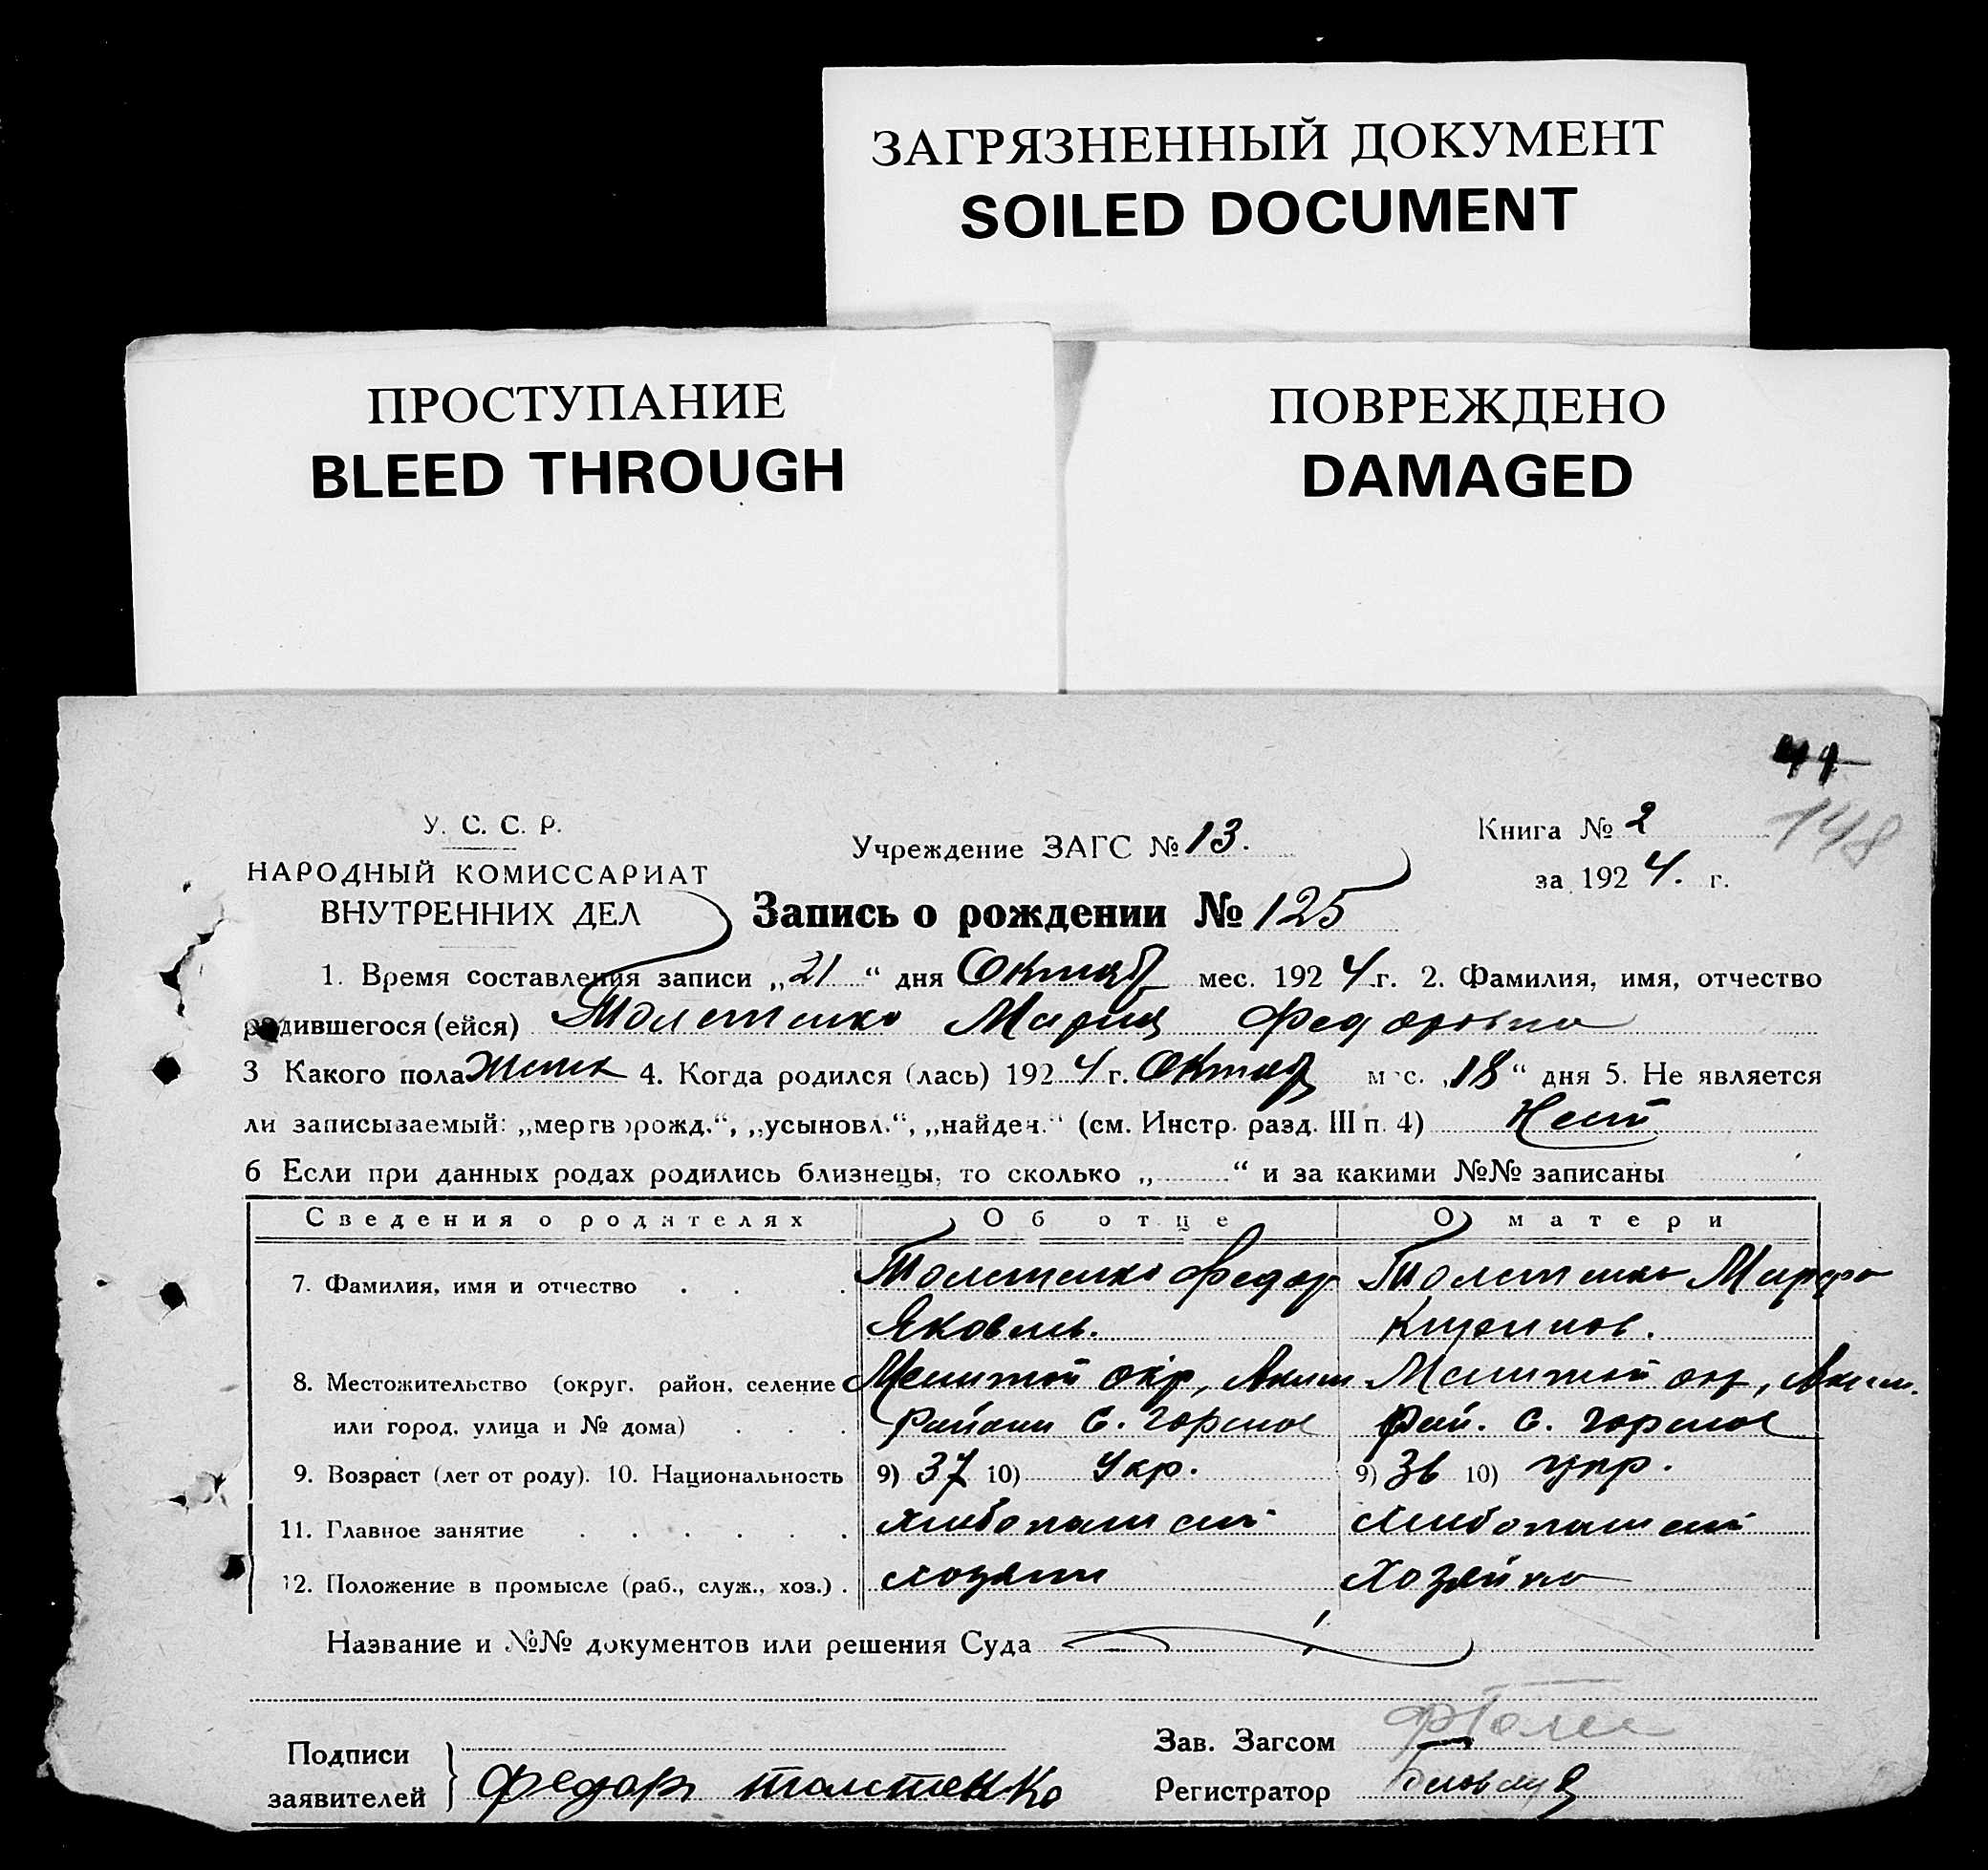 ЗАГРЯЗНЕННЫЙ ДОКУМЕНТ
SOILED DOCUMENT
ПРОСТУПАНИЕ
BLEED THROUGH
ПОВРЕЖДЕНО
DAMAGED
148
У. С. С. Р.
НАРОДНЫЙ КОМИССАРИАТ
ВНУТРЕННИХ ДЕЛ
Учреждение ЗАГС № 13.
Книга № 2
за 1924. г.
Запись о рождении № 125
1. Время составления записи „21“ дня Октяб мес. 1924 г. 2. Фамилия, имя, отчество
родившегося (ейся) Толстенко Мария Федоровна
3 Какого пола Женск 4. Когда родился (лась) 1924 г. Октяб мес. „18“ дня 5. Не является
ли записываемый: „мертворожд.“, „усыновл.“, „найден.“ (см. Инстр. разд. III п. 4) Нет
6 Если при данных родах родились близнецы, то сколько „ “ и за какими №№ записаны
Сведения о родителях Об отце О матери
7. Фамилия, имя и отчество Толстенко Федор Толстенко Марфа
Яковлев.
8. Местожительство (округ, район, селение Мелитой окр, Аким Мелитой окр, Аким.
или город, улица и № дома) Района С. Горелое Рай. С. Горелое
9. Возраст (лет от роду). 10. Национальность 9) 37 10) Укр. 9) 36 10) Укр.
11. Главное занятие хлебопашец хлебопашец
12. Положение в промысле (раб., служ., хоз.) хозяин Хозяйка
Название и №№ документов или решения Суда
Подписи
заявителей } Федор толстенко
Зав. Загсом
Регистратор